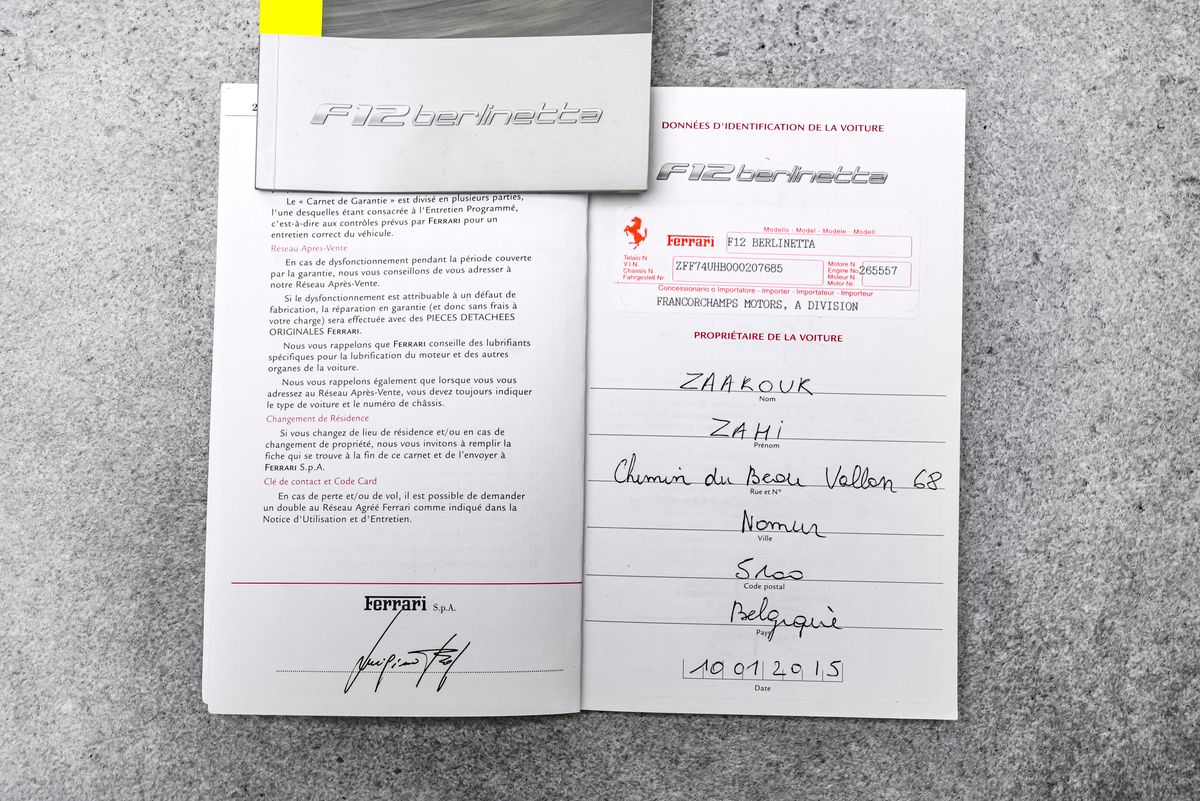 F12berlinetta
2
Le « Carnet de Garantie » est divisé en plusieurs parties,
l'une desquelles étant consacrée à l'Entretien Programmé,
c'est-à-dire aux contrôles prévus par FERRARI pour un
entretien correct du véhicule.
Réseau Après-Vente
En cas de dysfonctionnement pendant la période couverte
par la garantie, nous vous conseillons de vous adresser à
notre Réseau Après-Vente.
Si le dysfonctionnement est attribuable à un défaut de
fabrication, la réparation en garantie (et donc sans frais à
votre charge) sera effectuée avec des PIECES DETACHEES
ORIGINALES FERRARI.
Nous vous rappelons que FERRARI conseille des lubrifiants
spécifiques pour la lubrification du moteur et des autres
organes de la voiture.
Nous vous rappelons également que lorsque vous vous
adressez au Réseau Après-Vente, vous devez toujours indiquer
le type de voiture et le numéro de châssis.
Changement de Résidence
Si vous changez de lieu de résidence et/ou en cas de
changement de propriété, nous vous invitons à remplir la
fiche qui se trouve à la fin de ce carnet et de l'envoyer à
FERRARI S.p.A.
Clé de contact et Code Card
En cas de perte et/ou de vol, il est possible de demander
un double au Réseau Agréé Ferrari comme indiqué dans la
Notice d'Utilisation et d'Entretien.
Ferrari S.p.A.
DONNÉES D'IDENTIFICATION DE LA VOITURE
F12berlinetta
Modello - Model - Modèle - Modell
Ferrari F12 BERLINETTA
Telaio N.
V.I.N.
Chassis N.
Fahrgestell Nr.
ZFF74UHB000207685
Motore N.
Engine No.
Moteur N.
Motor Nr.
265557
Concessionario o Importatore - Importer - Importateur - Importeur
FRANCORCHAMPS MOTORS, A DIVISION
PROPRIÉTAIRE DE LA VOITURE
ZAAROUR
Nom
ZAHI
Prénom
Chemin du Beau Vallon 68
Rue et N°
Namur
Ville
5100
Code postal
Belgique
Pays
10 01 2015
Date